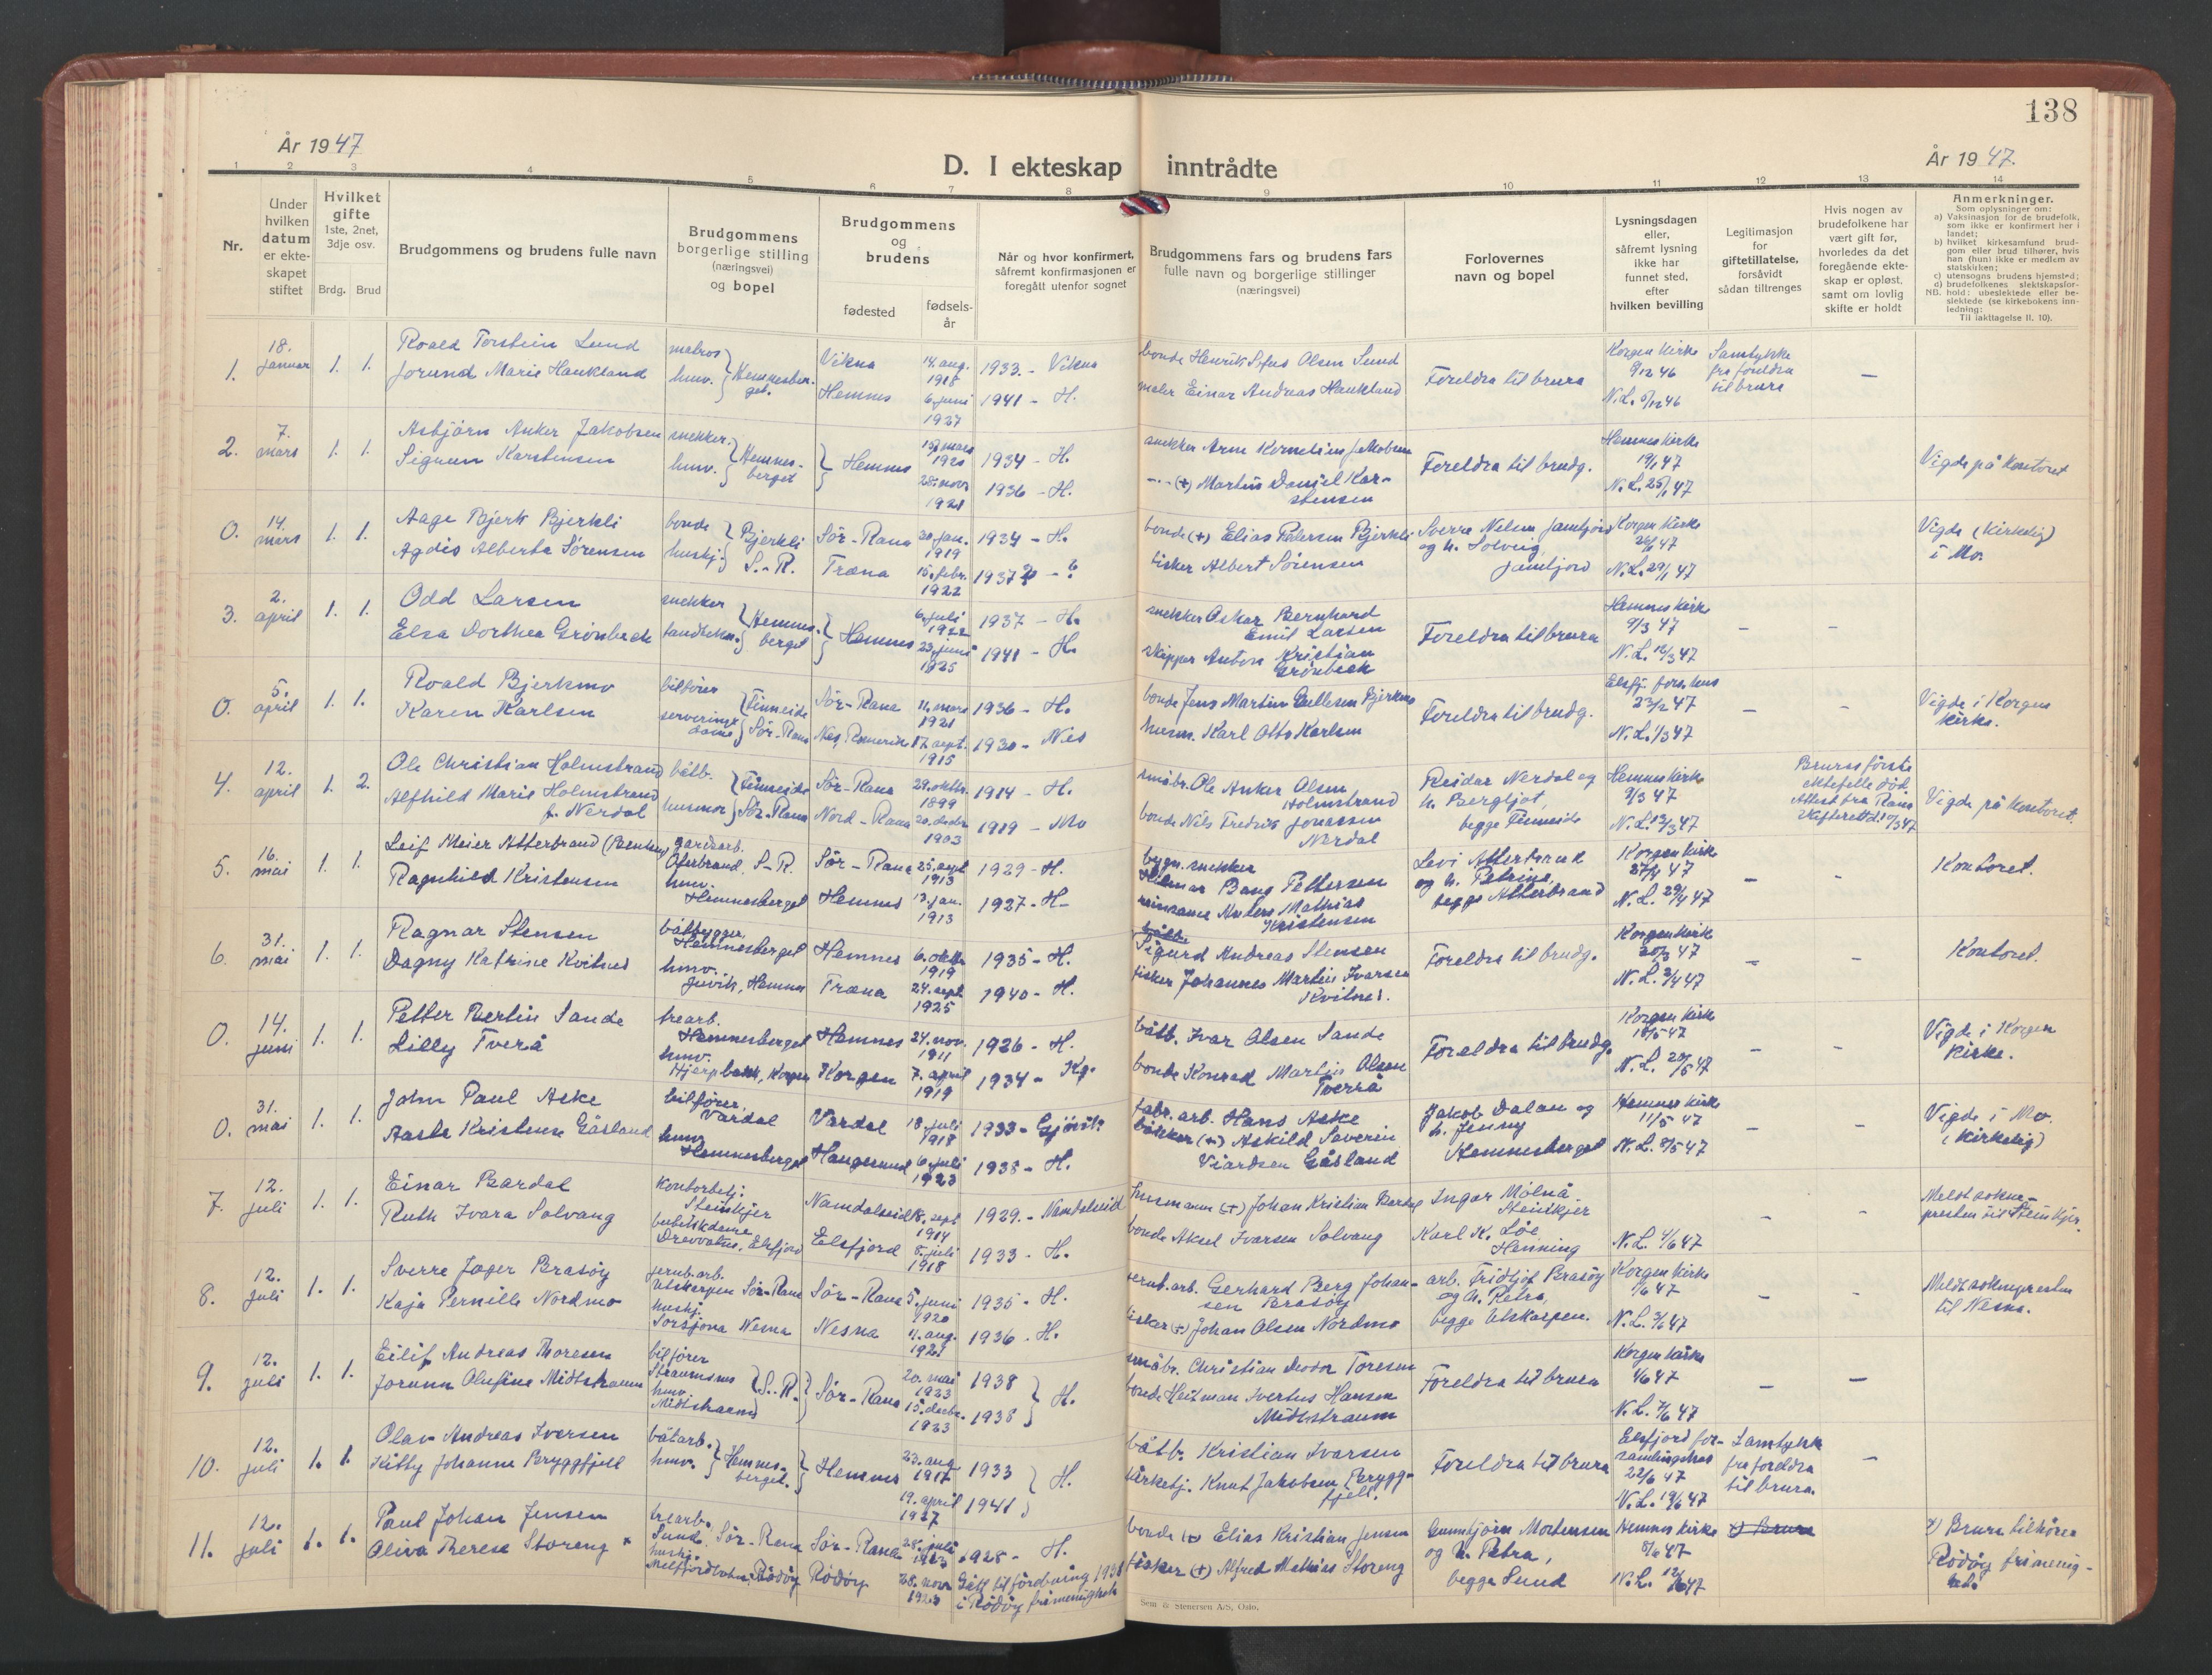 138
År 1947
År 1947.
D. I ekteskap inntrådte
1 2 3 4 5 6 7 8 9 10 11 12 13 14
Nr.
Under hvilken datum er ekteskapet stiftet
Hvilket gifte 1ste, 2net, 3dje osv.
Brdg. Brud
Brudgommens og brudens fulle navn
Brudgommens borgerlige stilling (næringsvei) og bopel
Brudgommens og brudens
fødested
fødsels-år
Når og hvor konfirmert, såfremt konfirmasjonen er foregått utenfor sognet
Brudgommens fars og brudens fars fulle navn og borgerlige stillinger (næringsvei)
Forlovernes navn og bopel
Lysningsdagen eller, såfremt lysning ikke har funnet sted, efter hvilken bevilling
Legitimasjon for giftetillatelse, forsåvidt sådan tiltrenges
Hvis nogen av brudefolkene har vært gift før, hvorledes da det foregående ekteskap er opløst, samt om lovlig skifte er holdt
Anmerkninger.
Som oplysninger om:
a) Vaksinasjon for de brudefolk, som ikke er konfirmert her i landet;
b) hvilket kirkesamfund brudgom eller brud tilhører, hvis han (hun) ikke er medlem av statskirken;
c) utensogns brudens hjemsted;
d) brudefolkenes slektskapsforhold: ubeslektede eller beslektede (se kirkebokens innledning:
NB.
Til iakttagelse II, 10).
1. 18. januar 1. 1. Roald Torstein Lund matros Vikna 14. aug. 1918 1933 - Vikna
Jorund Marie Haukland hmv. Hemnesberget. Hemnes 6. juni 1927 1941 - H.
bonde Henrik Olsen Lund
maler Einar Andreas Haukland
Foreldra til brura
Korgen kirke 9/12 46
N.L. 46
Samtykke fra foreldra til brura
—
2. 7. mars 1. 1. Asbjørn Anker Jakobsen snekker. Hemnesberget Hemnes mars 1920 1934 - H.
Sigrun Karstensen hmv. 28. nov. 1921 1936 - H.
snekker Arne Kornelius Jakobsen
(+) Martin Daniel Karstensen
Foreldra til brudg.
Hemnes kirke 19/1 47
N.L. 25/1 47
Vigde på kontoret
0. 14. mars 1. 1. Aage Bjerk Bjerkli bonde Bjerkli S.-R. Sör-Rana 20. jan. 1919 1934 - H.
Agdis Alberta Sørensen hushj. Træna 15. febr. 1922 1937 ? - ?
bonde (+) Elias Petersen Bjerkli
fisker Albert Sørensen
Sverre Nelsen Jamtjord og h. Solveig, Jamtjord
Korgen kirke 26/1 47
N.L. 29/1 47
Vigde (kirkelig) i Mo.
3. 2. april 1. 1. Odd Larsen snekker Hemnesberget Hemnes 6. juli 1922 1937 - H.
Elsa Dorthea Grönbech 23. juni 1925 1941 - H.
snekker Oskar Bernhard Emil Larsen
skipper Anton Kristian Grönbech
Foreldra til brura
Hemnes kirke 9/3 47
N.L. 12/3 47
0. 5. april 1. 1. Roald Bjerkmo bilfører Finneide Sör-Rana Sör-Rana 11. mars 1921 1936 - H.
Karen Karlsen serveringsdame Nes, Romerike 17. sept. 1915 1930 - Nes
bonde Jens Martin Bjerkmo
husm. Karl Otto Karlsen
Foreldra til brudg.
Elsfj. fors.hus 23/2 47
N.L. 1/3 47
Vigde i Korgen kirke.
4. 12. april 1. 2. Ole Christian Holmstrand båtb. Finneide Sör-Rana Sör-Rana 29. oktbr. 1899 1914 - H.
Alfhild Marie Holmstrand f. Nerdal husmor Nord-Rana 20. decbr. 1903 1919 - Mo
småbr. Ole Anker Olsen Holmstrand
bonde Nils Fredrik Jonassen Nerdal
Reidar Nerdal og h. Bergljot, begge Finneide
Hemnes kirke 9/3 47
N.L. 12/3 47
Bruras förste ektefelle död. Attest fra Rana skifterett d. 10/3 47
Vigde på kontoret.
5. 16. mai 1. 1. Leif Meier Atterbrand gardsarb. Aterbrand, S-R. Sör-Rana 25. sept 1913 1929 - H.
Ragnhild Kristensen hmv. Hemnesberget Hemnes 12. jan. 1913 1927 - H-
bygn. snekker Hilmar Bang Pettersen
Anders Mathias Kristensen
Levi Atterbrand og h. Petrine, begge Atterbrand
Korgen kirke 27/4 47
N.L. 29/4 47
Kontoret.
6. 31. mai 1. 1. Ragnar Stensen båtbygger, Hemnesberget Hemnes 6. oktbr 1919 1935 - H.
Dagny Katrine Kvitnes hmv. Juvik, Hemnes Træna 24. sept 1925 1940 - H.
Sigurd Andreas Stensen
fisker Johannes Martin Ivarsen Kvitnes.
Foreldre til brudg.
Korgen kirke 30/3 47
N.L. 2/4 47
Kontoret.
0. 14. juni 1. 1. Petter Bertin Sande trearb. Hemnesberget Hemnes 24. nov. 1911 1926 - H.
Lilly Tverå hmv. Hjerpbakk, Korgen Korgen 7. april 1919 1934 - Kg.
båtb. Ivar Olsen Sande
bonde Konrad Martin Olsen Tverrå
Foreldra til brudg.
Korgen kirke 18/5 47
N.L. 20/5 47
Vigde i Korgen kirke.
0. 31. mai 1. 1. John Paul Aske bilfører, Vardal Vardal 18. juli 1918 1933 - Gjövik
Aasta Kristense Gåsland hmv. Hemnesberget Haugesund 6. juli 1923 1938 - H.
fabr.arb. Hans Aske
bakker (+) Askild Severin Viardsen Gåsland
Jakob Dalan og h. Jenny Hemnesberget
Hemnes kirke 11/5 47
N.L. 8/5 47
Vigde i Mo. (kirkelig)
7. 12. juli 1. 1. Einar Bardal kontorbetj. Steinkjer Namdalseid 18. sept 1914 1929. - Namdalseid
Ruth Ivara Solvang butikkdame Drevvatne, Elsfjord Elsfjord 8. juli 1918 1933 - H.
husmann (+) Johan Kristian Bardal
bonde Aksel Ivarsen Solvang
Ingar Mölnå. Steinkjer
Karl K. Løe, Henning
N.L. 4/6 47
Meldt sokne-presten til Steinkjer.
8. 12. juli 1. 1. Sverre Jager Brasöy jernb.arb. Utskarpen Sör-Rana Sör-Rana 5. juni 1920 1935 - H.
Kaja Pernille Nordmo hushj. Sorsjona Nesna Nesna 4. aug. 1921 1936 - H.
jernb.arb. Gerhard Berg Johansen Brasöy
fisker (+) Johan Olsen Nordmo
arb. Fridtjof Brasöy og h. Petra, begge Utskarpen.
Korgen kirke 1/6 47
N.L. 3/6 47
Meldt soknepresten til Nesna.
9. 12. juli 1. 1. Eilif Andreas Thoresen bilfører Straumsnes S.-R. Sör-Rana 20. mai 1923 1938 H.
Jorunn Olufine Midtstraum hmv. Midtstraum 15. decbr. 1923 1938
småbr. Christian Teodor Toresen
bonde Heitman Ivertus Hansen Midtstraum
Foreldra til brura
Korgen kirke 1/6 47
N.L. 7/6 47
10. 12. juli 1. 1. Olav Andreas Iversen båtarb. Hemnesberget. Hemnes 23. aug 1917 1933 H.
Kitty Johanne Bryggfjell hmv. 19. april 1927 1941
båtb. Kristian Ivarsen
kirketj. Knut Jakobsen Bryggfjell.
Foreldra til brura
Elsfjord forsamlingshus 22/6 47
N.L. 19/6 47
Samtykke fra foreldra til brura.
11. 12. juli 1. 1. Paul Johan Jensen trearb. Sund, Sör-Rana Sör-Rana 28. juli 1913 1928 - H.
Oliva Therese Storeng x hushj. Melfjordbotn, Rödöy Rödöy 28. novr 1923 Gått til förebuing 1938 i Rödöy frimenighet
bonde (+) Elias Kristian Jensen
fisker (+) Alfred Mathias Storeng
Gunnbjörn Mortensen og h. Petra, begge Sund
Hemnes kirke 8/6 47
N.L. 12/6 47
x) Brura
x) Brura tilhörer Rödöy frimenighet.
Sem & Stenersen A/S, Oslo.